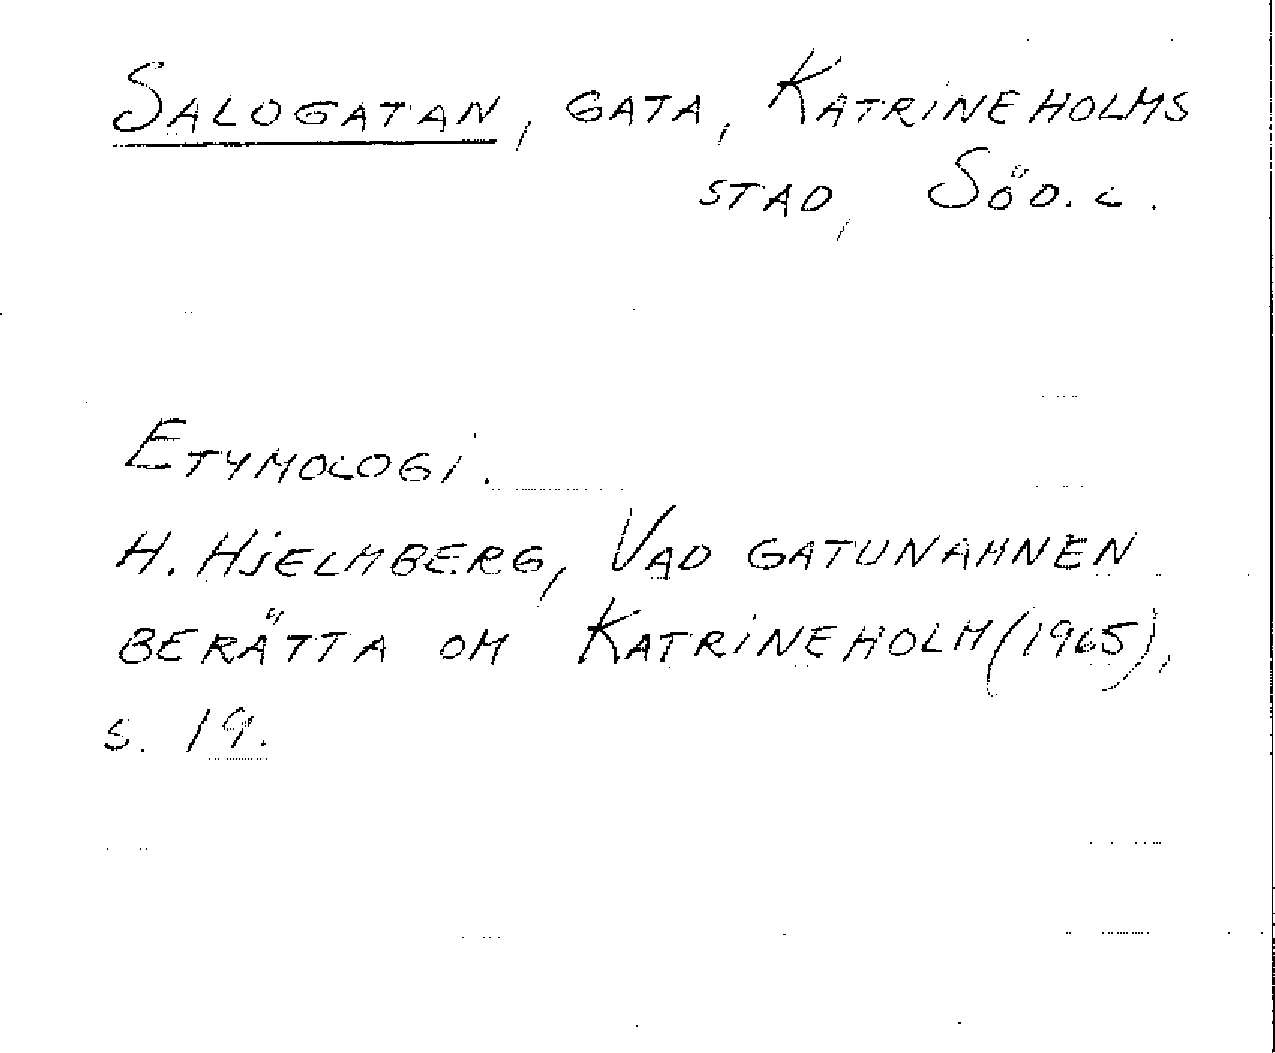 Salogatan, gata, Katrineholms
stad, Söd. l.
Etymologi.
H. Hjelmberg, Vad gatunamnen
berätta om Katrineholm (1965),
s. 19.